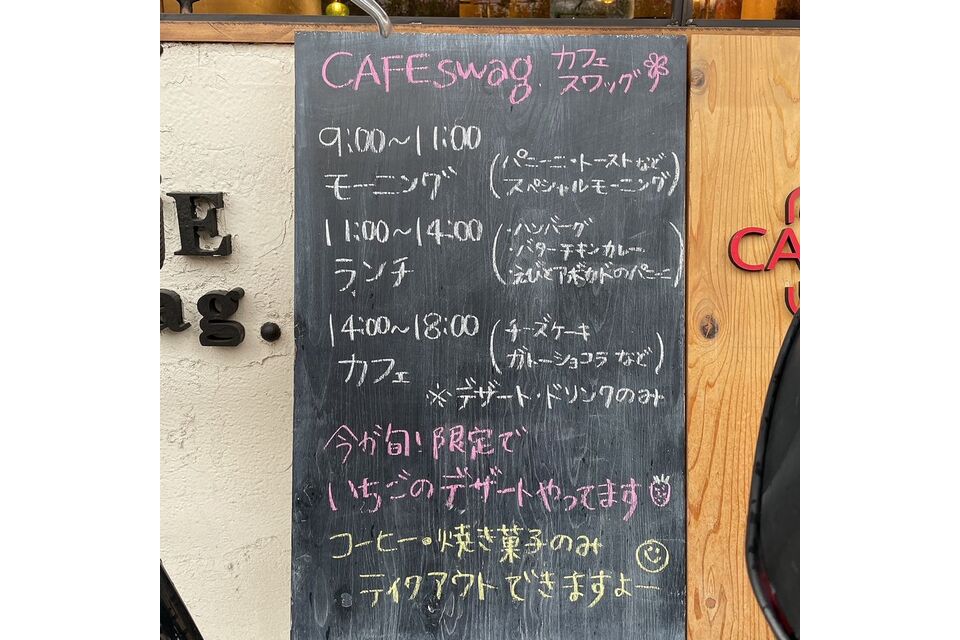 CAFE swag. カフェ
スワッグ
9:00~11:00
モーニング
(パニーニ・トーストなど
スペシャルモーニング)
11:00~14:00
ランチ
(・ハンバーグ
・バターチキンカレー
・えびとアボカドのパニーニ)
14:00~18:00
カフェ
(チーズケーキ
ガトーショコラ など)
※デザート・ドリンクのみ
今が旬!限定で
いちごのデザートやってます
コーヒー・焼き菓子のみ
テイクアウトできますよー
E
ag.
CA